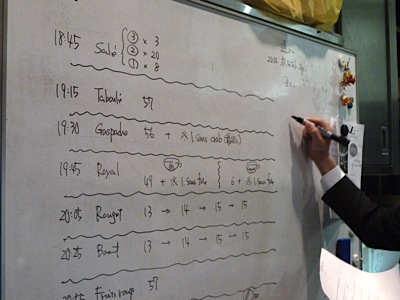 18:45 Salé ③ × 3
② × 20
① × 8
19:15 Taboulé 57
19:30 Gaspacho 56 + ※ 1 sans crab
19:45 Royal 49 + ※ 1 sans foie 6 + ※ 1 sans foie
20:05 Rouget 13 → 14 → 15 → 15
20:25 Boeuf 13 → 14 → 15 → 15
Fruits rouge 57